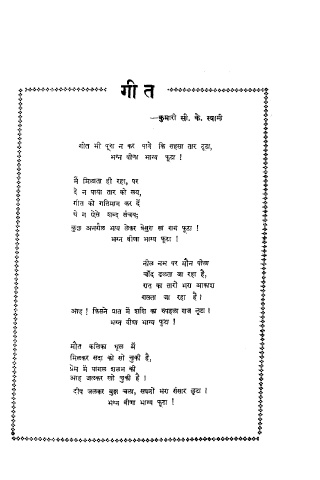 गीत
—कुमारी सी. के. स्वामी
गीत भी पूरा न कर पाये कि सहसा तार टूटा,
भग्न वीणा भाग्य फूटा !
मैं मिलाता ही रहा, पर
दे न पाया तार को लय,
गीत को गतिमान कर दें
थे न ऐसे शब्द संचय;
कुछ अनर्गल भाव लेकर बेसुरा सा राग फूटा !
भग्न वीणा भाग्य फूटा !
नील नभ पर मौन पीला
चाँद ढलता जा रहा है,
रात का तारों भरा आकाश
गलता जा रहा है !
आह ! किसने प्रात में शशि का रुपहला राज लूटा !
भग्न वीणा भाग्य फूटा !
मौत कलिका धूल में
मिलकर सदा को सो चुकी है,
प्रेम में पागल शलभ की
आह जलकर सो चुकी है।
दीप जलकर बुझ चला, सपनों भरा संसार लूटा !
भग्न वीणा भाग्य फूटा !